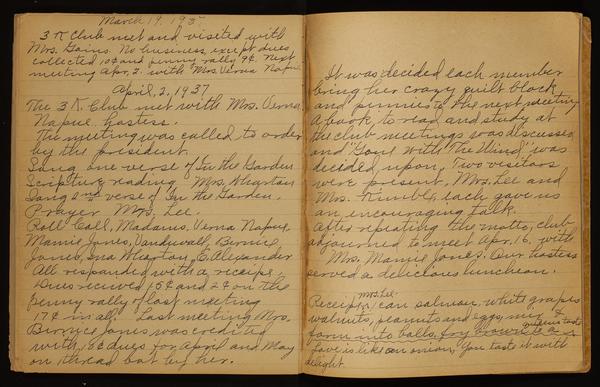 March 19, 193
3 K Club met and visited with
Mrs. Gains. No business, except dues
collected 10¢ and penny rally 9¢. Next
meeting Apr. 2. with Mrs. Verna Napue.
April, 2, 1937
The 3 K. Club met with Mrs. Verna
Napue. hostess.
The meeting was called to order
by the president.
Song one verse of In the Garden
Scripture reading Mrs. Wharton
Song 2nd verse of In the Garden.
Prayer Mrs. Lee.
Roll Call, Madams, Verna Napue,
Mamie Jones, Vanduvall, Birnice
Jones, Ina Wharton, C. Alexander
All responded with a receipe.
Dues received 15¢ and 2¢ on the
penny rally of last meeting
17¢ in all. Last meeting Mrs.
Birnice Jones was credited
with 10¢ dues for April and May
on thread bot by her.
It was decided each member
bring her crazy quilt block
and pennies to the next meeting
A book to read and study at
the club meetings was discussed
and "Gone With The Wind" was
decided upon. Two visitors
were present, Mrs. Lee and
Mrs. Kimble, each gave us
an encouraging talk.
After repeating the motto, club
adjourned to meet Apr. 16, with
Mrs. Mamie Jones. Our hostess
served a delicious luncheon.
Mrs. Lee
Receipe, 1 can salmon, white grapes
walnuts, peanuts and eggs, mix &
form into balls, fry brown
Love is like an onion, You taste it with
delight